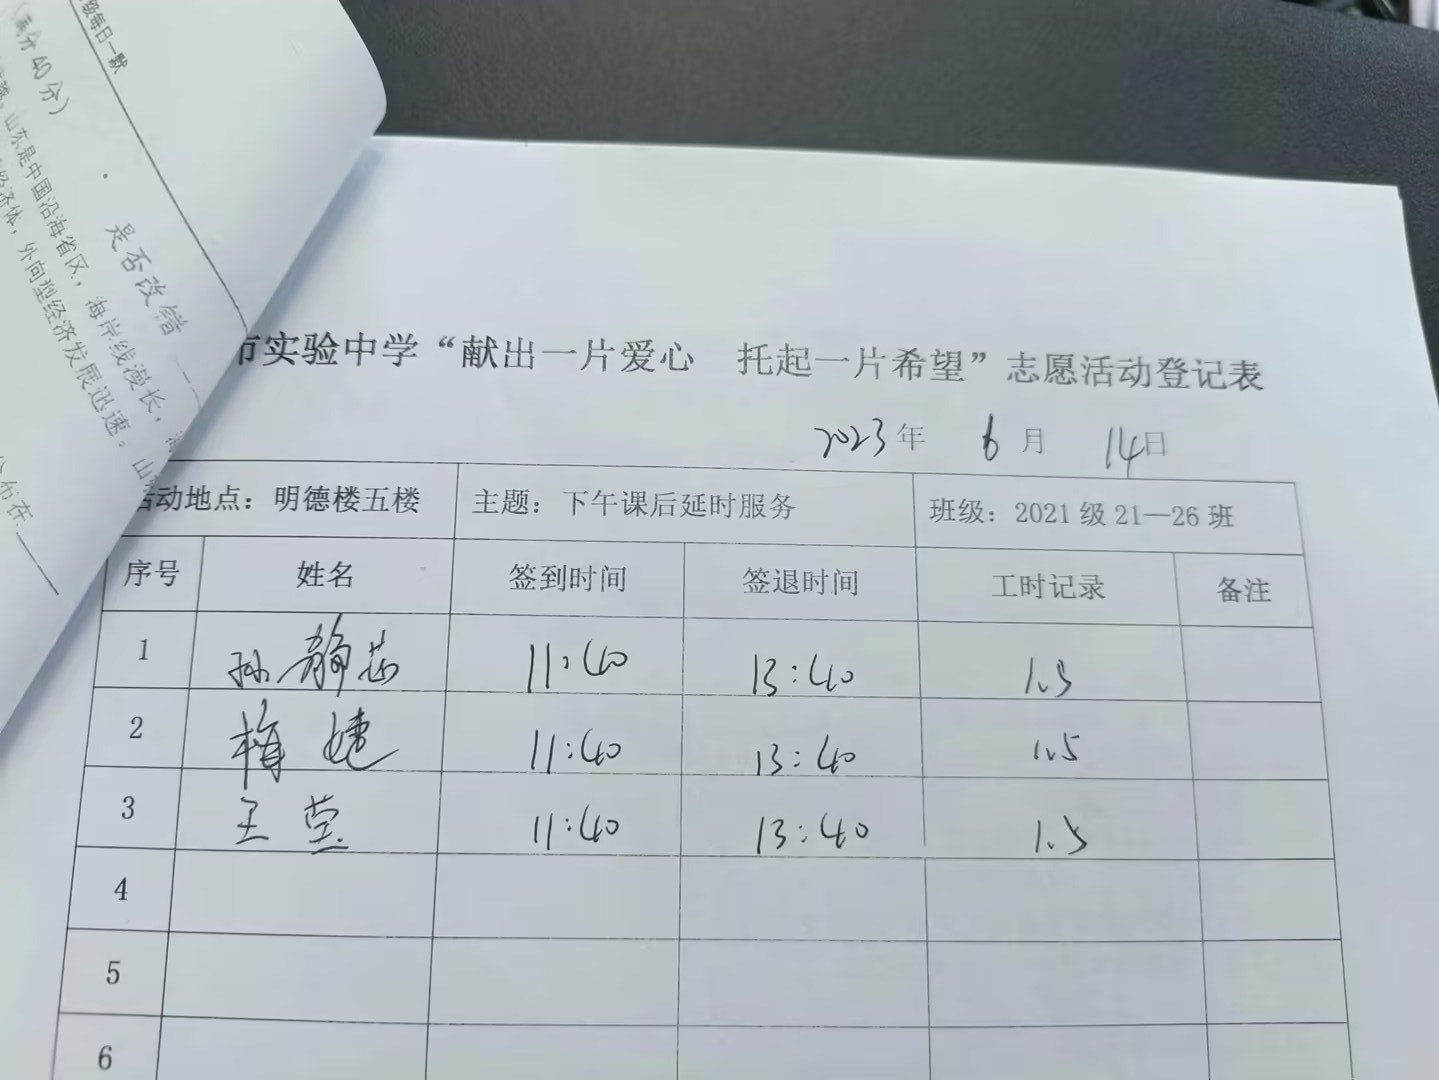 每日一默
满分40分）
山东是中国沿海省区，海岸线漫长，
经济体，外向型经济发展迅速。山
是否改错
市实验中学“献出一片爱心 托起一片希望”志愿活动登记表
2023年 6月 14日
活动地点：明德楼五楼 主题：下午课后延时服务 班级：2021级21—26班
序号 姓名 签到时间 签退时间 工时记录 备注
1 孙静 11:40 13:40 1.5
2 梅婕 11:40 13:40 1.5
3 王莹 11:40 13:40 1.5
4
5
6